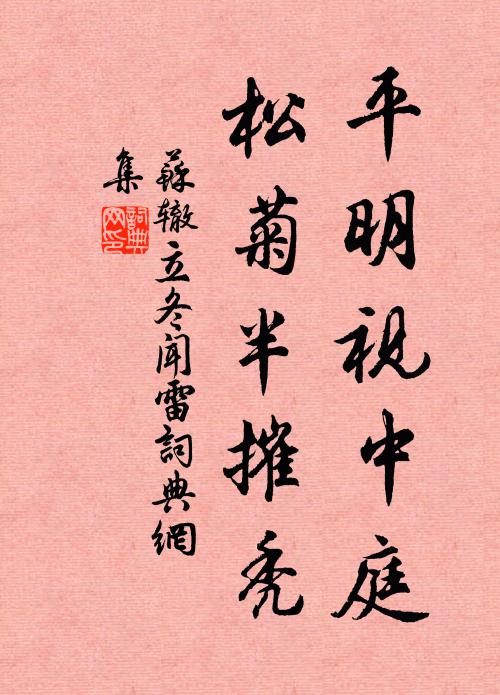 平明視中庭
松菊半摧禿
蘇轍立冬聞雷詞典網
集
詞典
网印